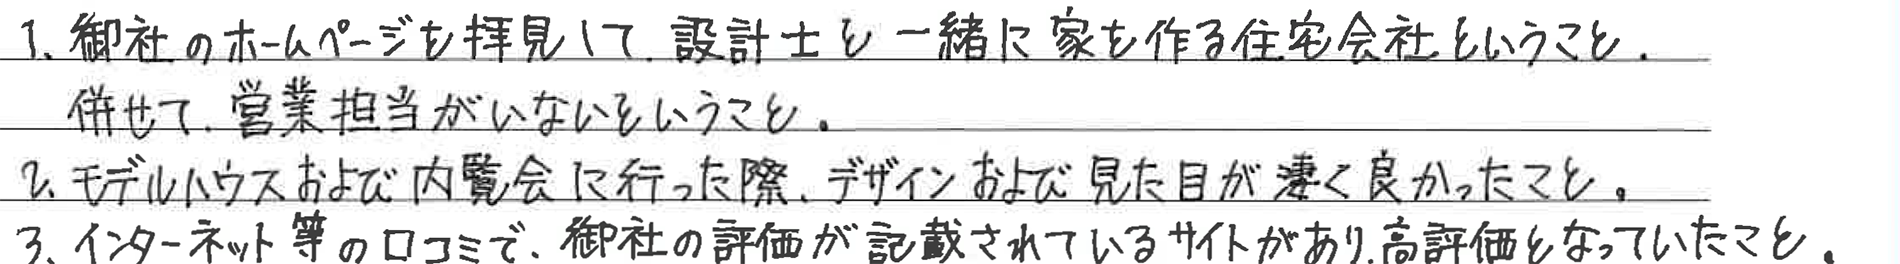 1. 御社のホームページを拝見して、設計士と一緒に家を作る住宅会社ということ.
併せて、営業担当がいないということ。
2. モデルハウスおよび内覧会に行った際、デザインおよび見た目が凄く良かったこと。
3. インターネット等の口コミで、御社の評価が記載されているサイトがあり、高評価となっていたこと。